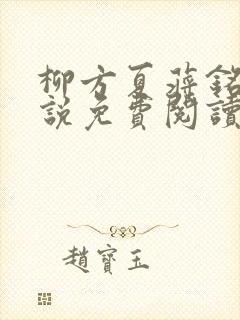 柳方夏蔣銘
說免費閱讀
趙寶玉